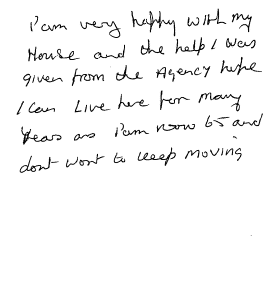 I'am very happy with my
House and the help I was
given from the Agency hope
I can Live here for many
Years as I'am now 65 and
dont wont to keep moving